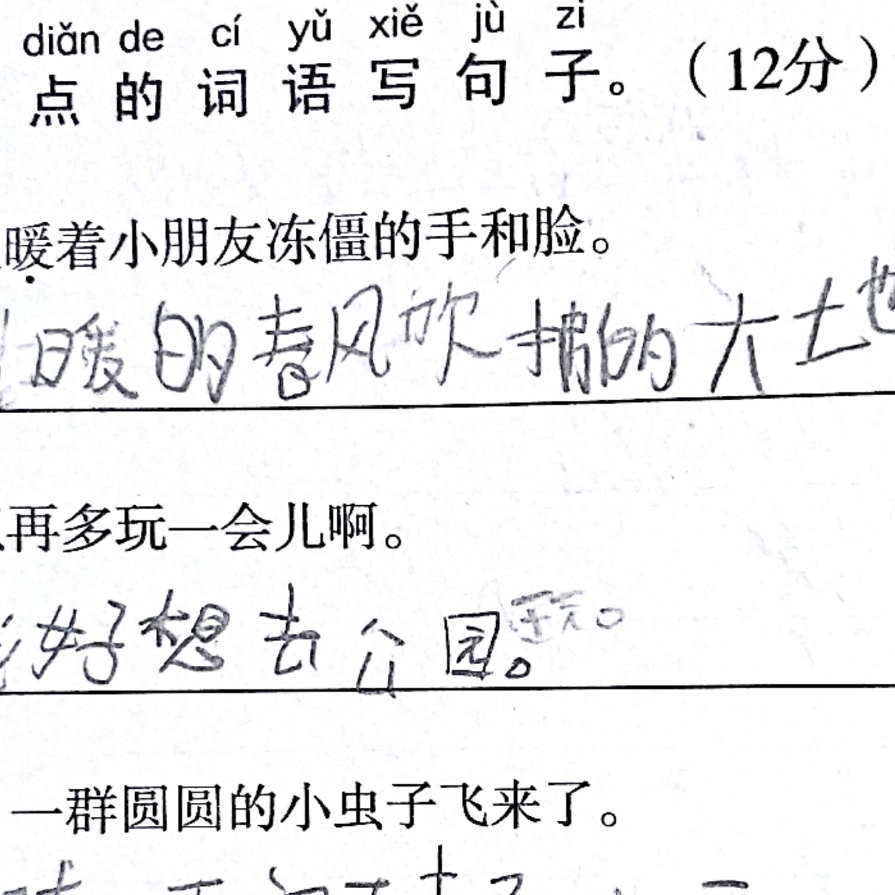 diǎn de cí yǔ xiě jù zi
点的词语写句子。（12分）
暖着小朋友冻僵的手和脸。
暖的春风吹拂的大土也
再多玩一会儿啊。
好想去公园。玩。
一群圆圆的小虫子飞来了。